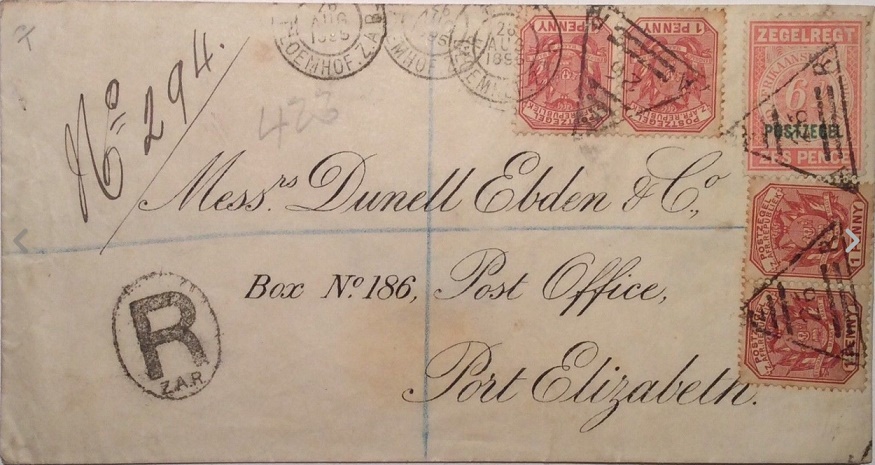 26
AUG
1895
BLOEMHOF.Z.A.R.
26
AUG
1895
1 PENNY
1 PENNY
POSTZEGEL
ZEGELREGT
6
POSTZEGEL
ZES PENCE
No 294.
423
Messrs Dunell Ebden & Co.,
POSTZEGEL
1 PENNY
Box No. 186, Post Office,
POSTZEGEL
1 PENNY
R
Z.A.R.
Port Elizabeth.